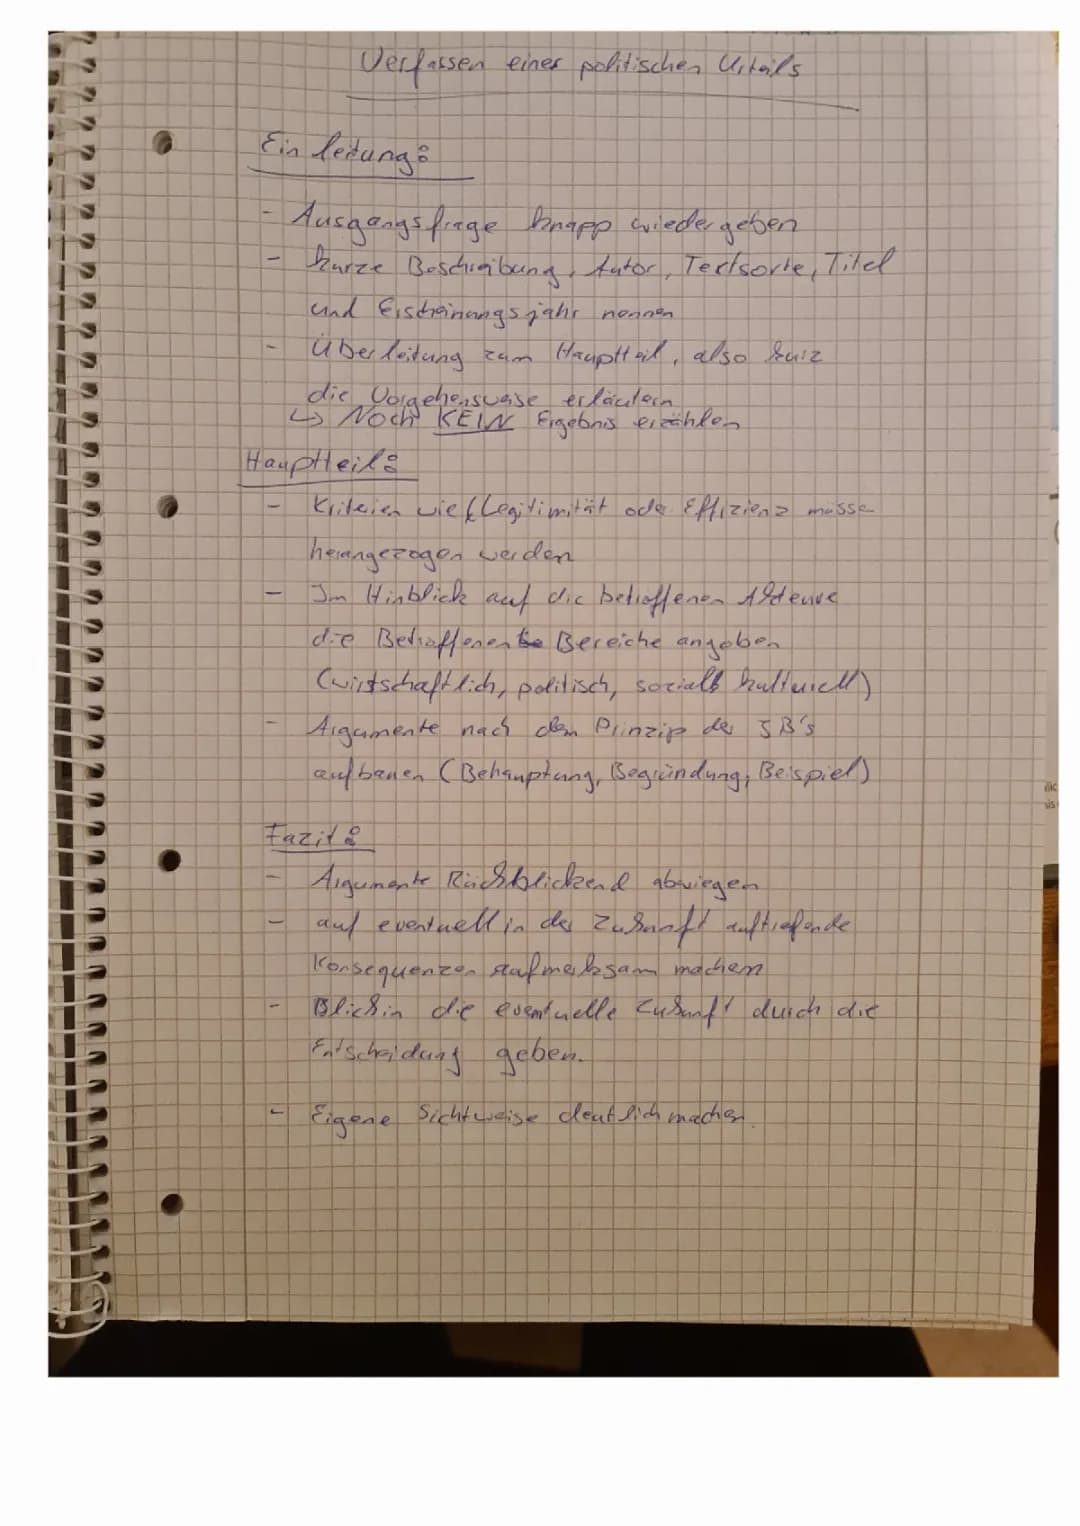 Verfassen eines politischen Urteils
Einleitung:
- Ausgangsfrage knapp wiedergeben
- kurze Beschreibung, Autor, Textsorte, Titel
und Erscheinungsjahr nennen
- Überleitung zum Hauptteil, also kurz
die Vorgehensweise erläutern
↳ Noch KEIN Ergebnis erzählen
Hauptteil:
- Kriterien wie Legitimität oder Effizienz müsse
herangezogen werden
- Im Hinblick auf die betroffenen Akteure
die Betroffenen Bereiche angeben
(wirtschaftlich, politisch, sozial kulturell)
- Argumente nach dem Prinzip der 3B's
aufbauen (Behauptung, Begründung, Beispiel)
Fazit:
- Argumente Rückblickend abwiegen
- auf eventuell in der Zukunft auftretende
Konsequenzen aufmerksam machen
- Blick in die eventuelle Zukunft durch die
Entscheidung geben.
- Eigene Sichtweise deutlich machen.